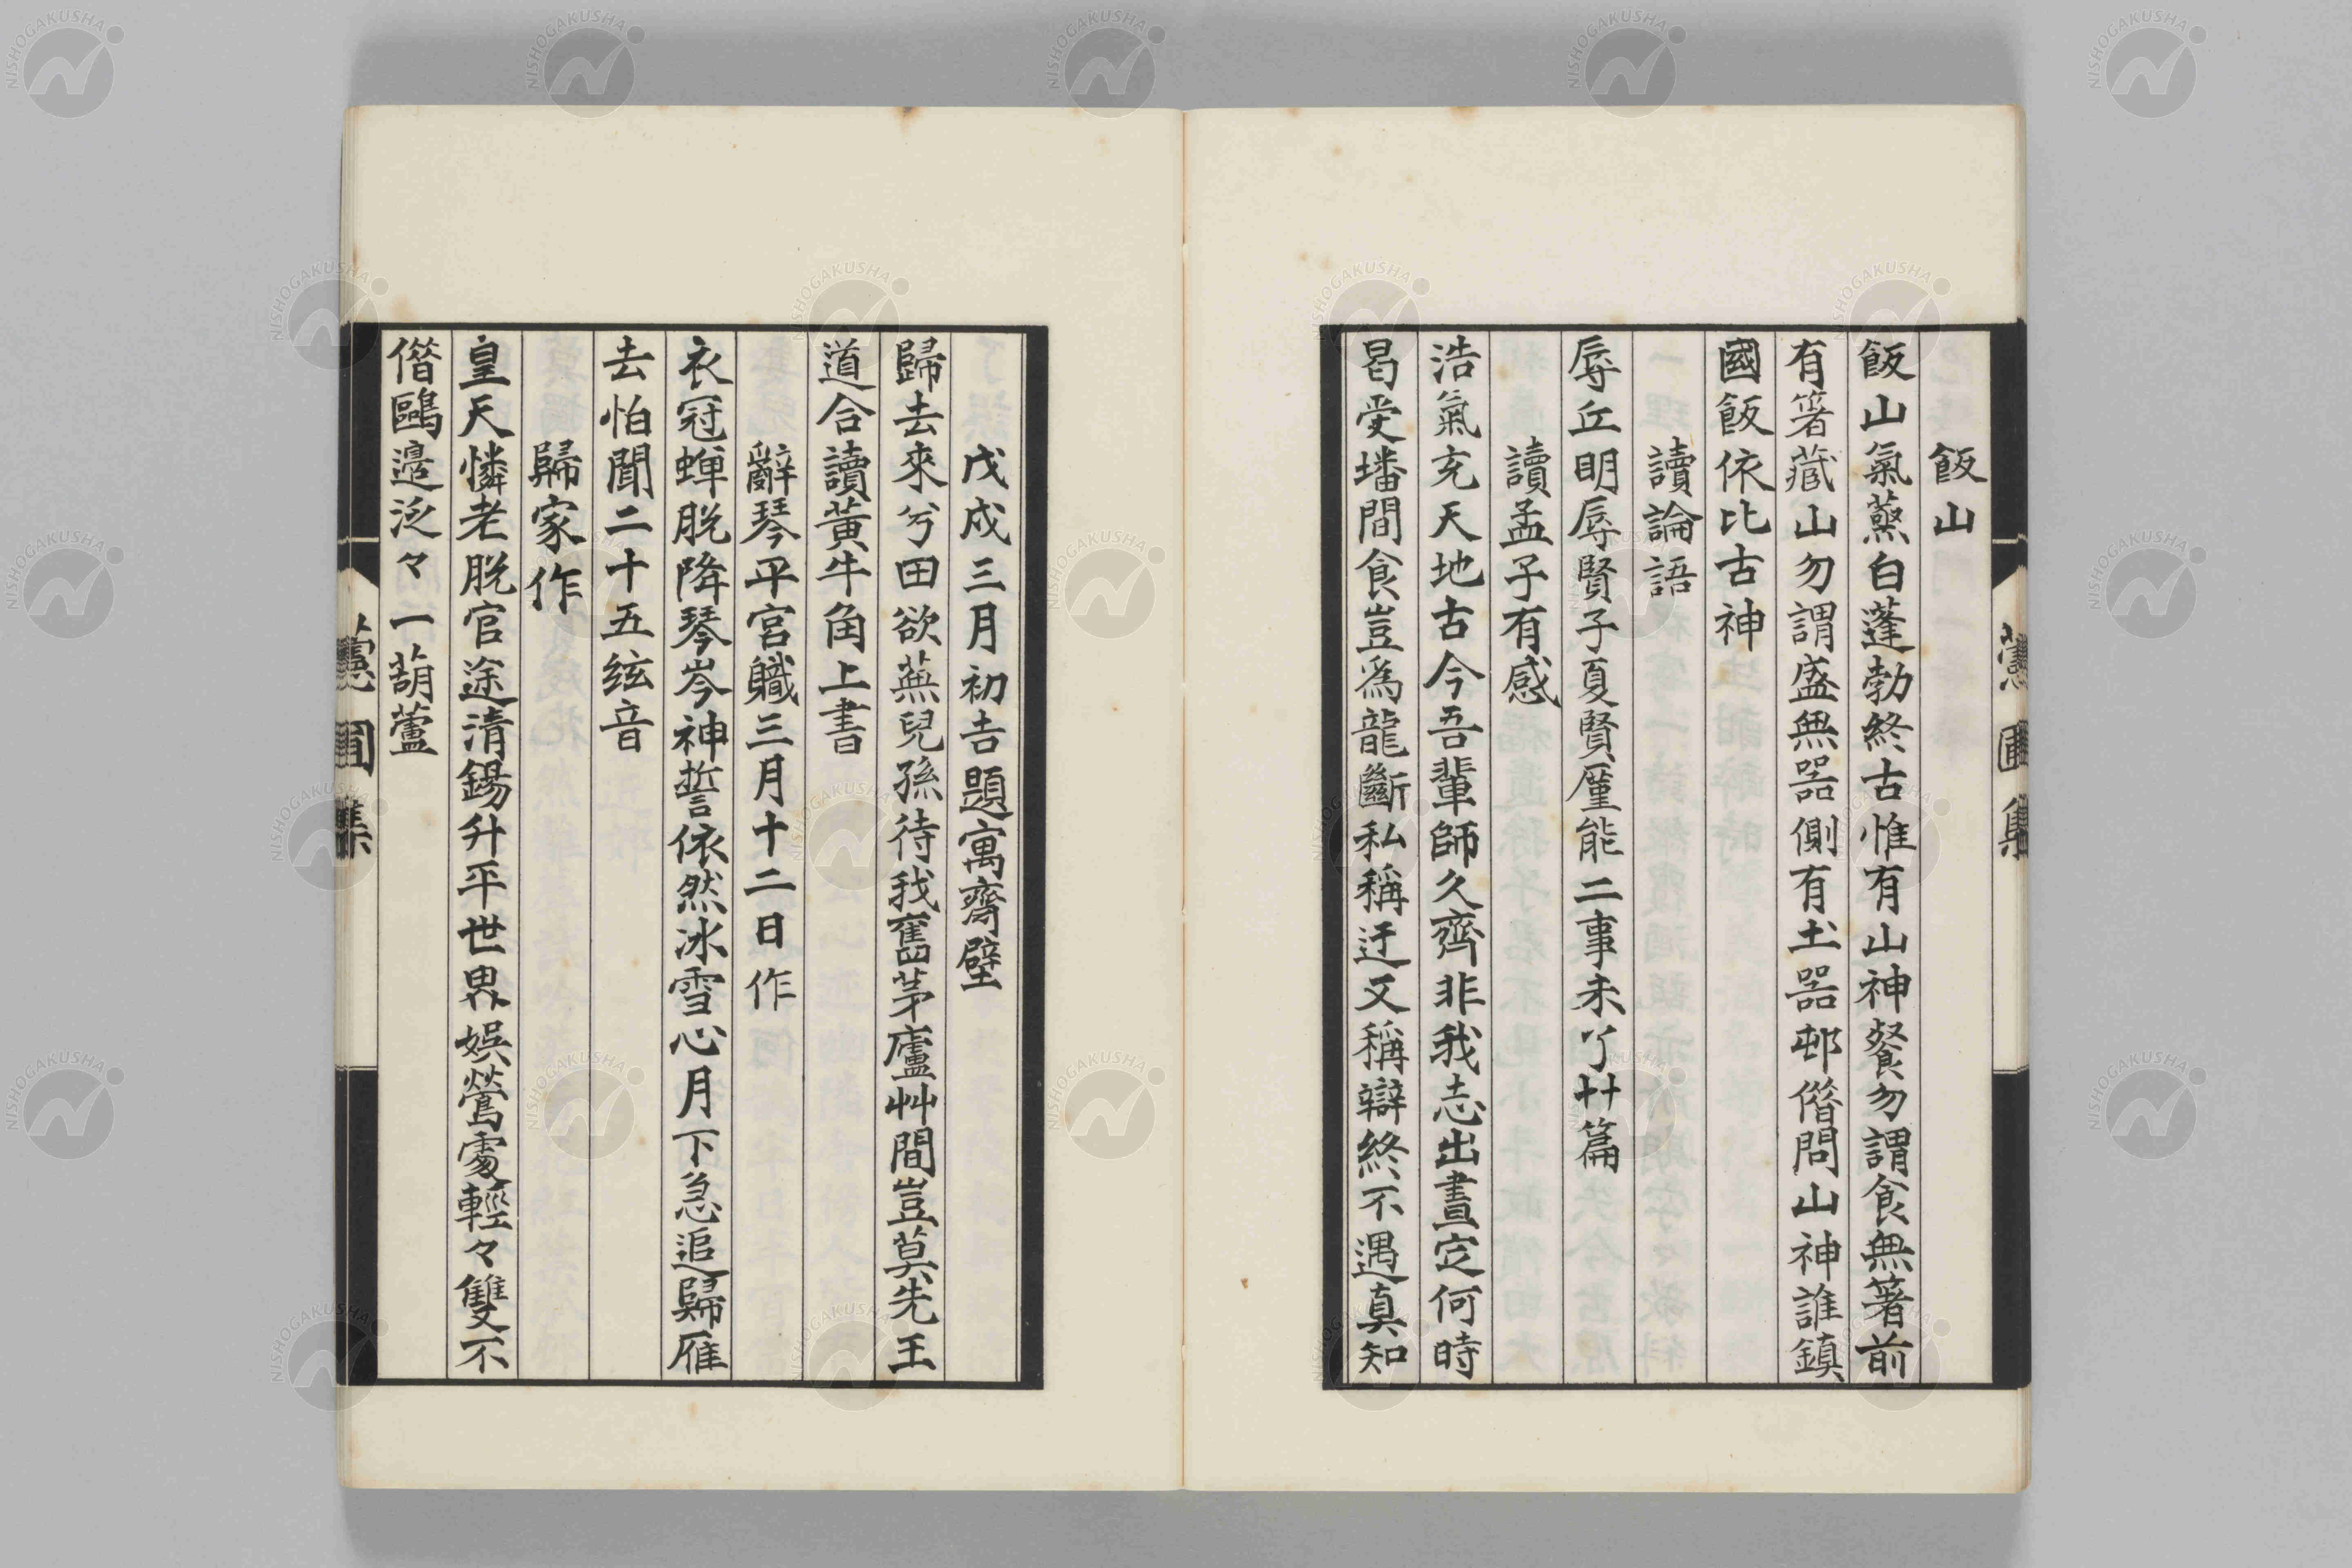 飯山
飯山氣蒸白蓬勃終古惟有山神餐勿謂食無箸前
有箸藏山勿謂盛無器側有土器邨僭問山神誰鎮
國飯依比古神
讀論語
辱丘明辱賢子夏賢厪能二事未丫艸篇
讀孟子有感
浩氣充天地古今吾輩師久齊非我志出晝定何時
曷受墦間食豈為龍斷私稱迂又稱辯終不遇真知
戊戌三月初吉題寓齋壁
歸去來兮田欲蕪兒孫待我舊茅廬艸間豈莫先王
道合讀黃牛角上書
辭琴平宮職三月十二日作
衣冠蟬脫降琴岑神誓依然冰雪心月下急追歸雁
去怕聞二十五絃音
歸家作
皇天憐老脫官途清錫升平世界娛鶯處輕々雙不
僭鷗邊泛々一葫蘆
圃集
NISHOGAKUSHA